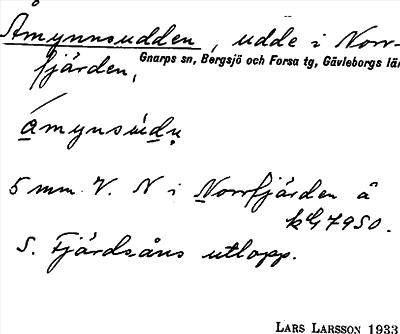 Åmynnsudden, udde i Norr-
Gnarps sn, Bergsjö och Forsa tg, Gävleborgs lä
fjärden,
5 mm. V. N i Norrfjärden å
S. Fjärdsåns utlopp.
LARS LARSSON 1933